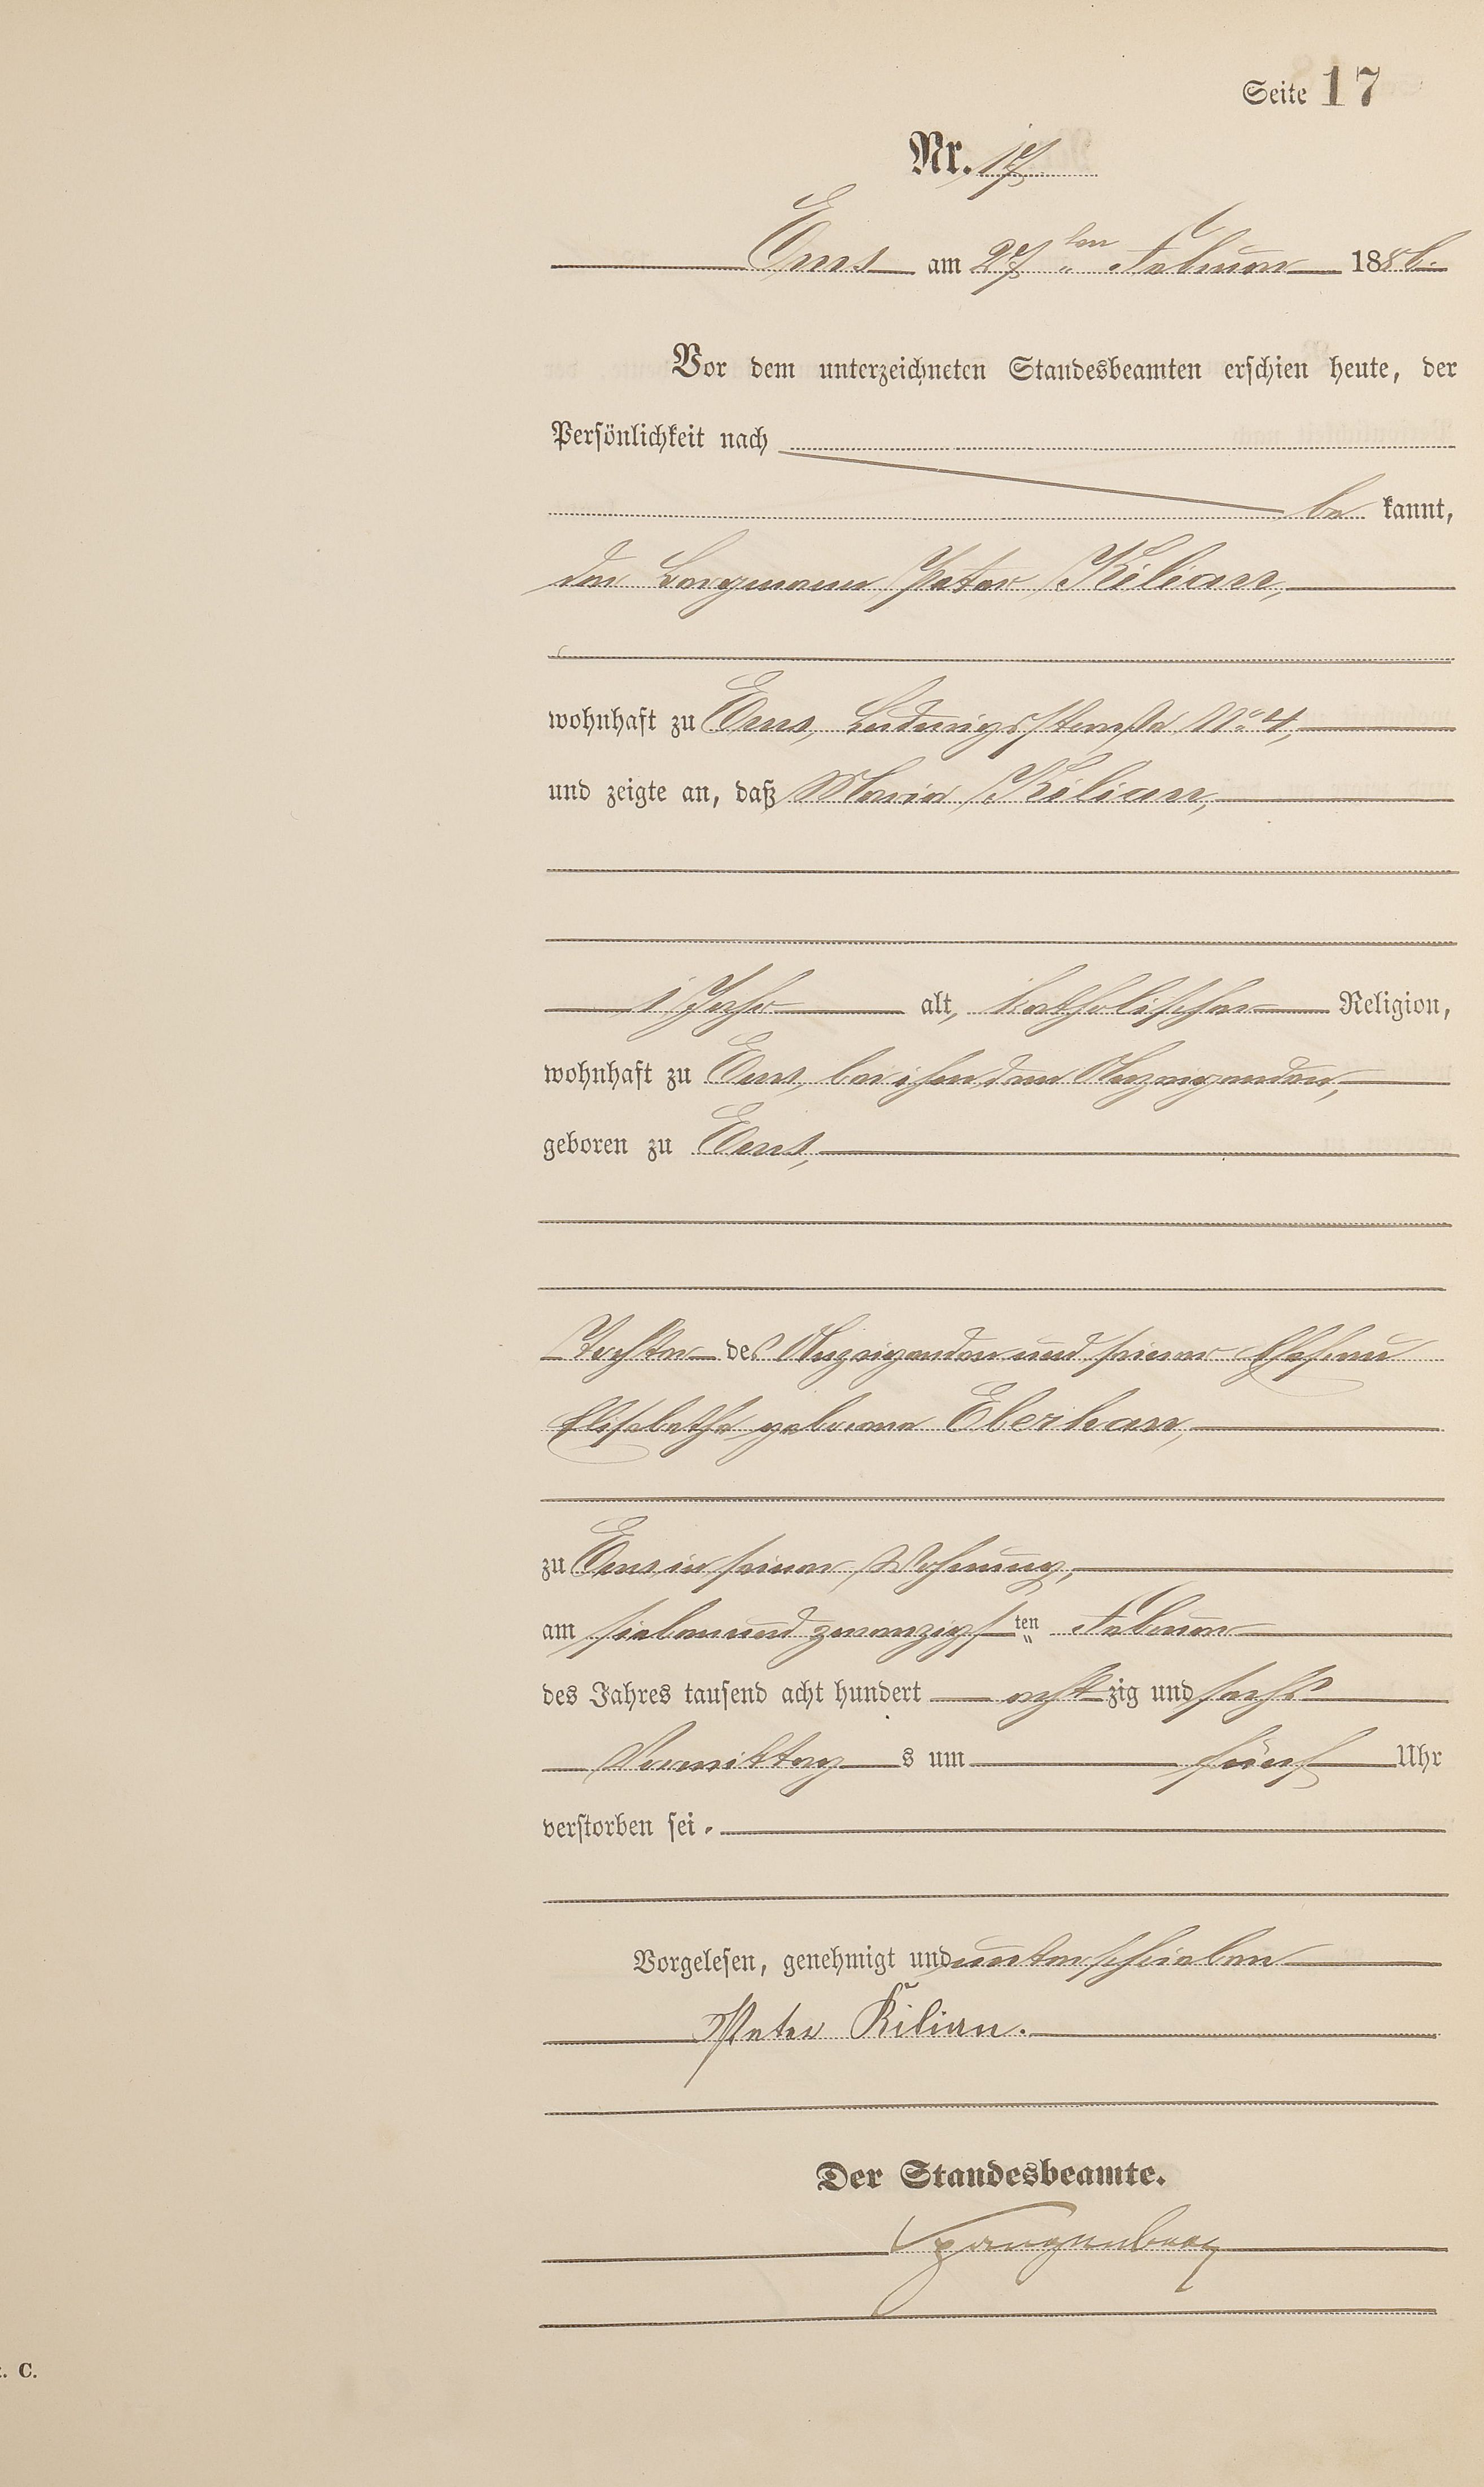 Seite 17
Nr. 17
Ems am 27 ten Februar 1886.
Vor dem unterzeichneten Standesbeamten erschien heute, der
Persönlichkeit nach
be kannt,
der Bergmann Peter Kilian,
wohnhaft zu Ems, Ludwigsstraße No 4,
und zeigte an, daß Maria Kilian,
1 Jahr alt, katholischer Religion,
wohnhaft zu Ems, bei ihm dem Anzeigenden,
geboren zu Ems,
Tochter des Anzeigenden und seiner Ehefrau
Elisabetha geborene
zu Ems in seiner Wohnung,
am siebenundzwanzigsten Februar
des Jahres tausend acht hundert achtzig und sechs
Vormittags um fünf Uhr
verstorben sei.
Vorgelesen, genehmigt und unterschrieben
Peter Kilian.
Der Standesbeamte.
Spangenberg
. C.